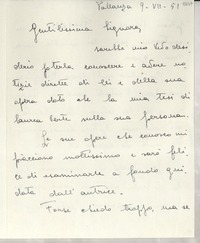 Pallanza 9-VII-51
Gentilissima Signora,
sarebbe mio vivo desi
derio poterla conoscere e avere no
tizie dirette di lei e della sua
opera dato che la mia tesi di
laurea verte sulla sua persona.
Le sue opere che conosco mi
piacciono moltissimo e sarò feli
ce di esaminarle a fondo gui
data dall'autrice.
Forse chiedo troppo, ma se